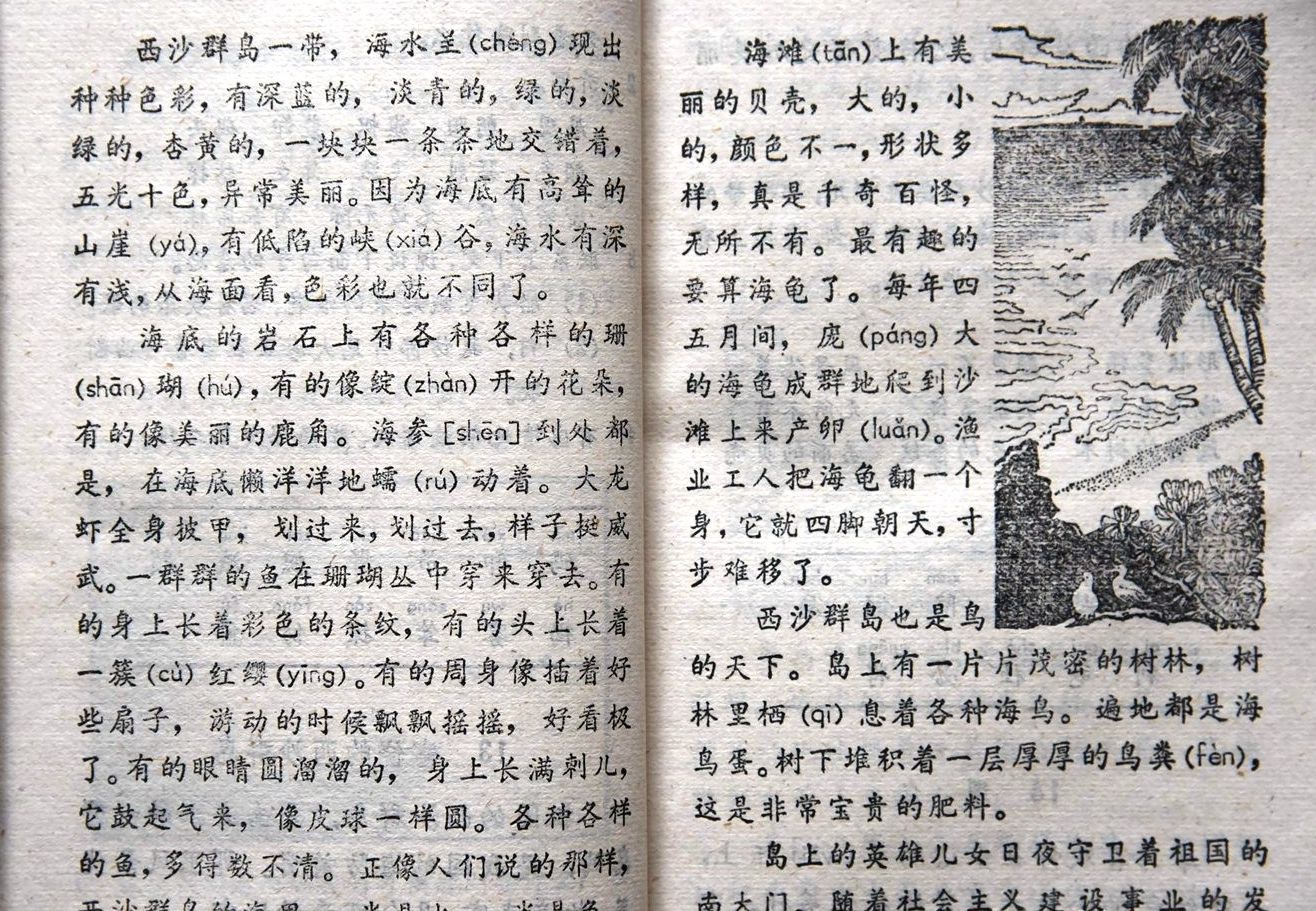 西沙群岛一带，海水呈(chéng)现出
种种色彩，有深蓝的，淡青的，绿的，淡
绿的，杏黄的，一块块一条条地交错着，
五光十色，异常美丽。因为海底有高耸的
山崖(yá)，有低陷的峡(xiá)谷，海水有深
有浅，从海面看，色彩也就不同了。
海底的岩石上有各种各样的珊
(shān)瑚(hú)，有的像绽(zhàn)开的花朵，
有的像美丽的鹿角。海参[shēn]到处都
是，在海底懒洋洋地蠕(rú)动着。大龙
虾全身披甲，划过来，划过去，样子挺威
武。一群群的鱼在珊瑚丛中穿来穿去。有
的身上长着彩色的条纹，有的头上长着
一簇(cù)红缨(yīng)。有的周身像插着好
些扇子，游动的时候飘飘摇摇，好看极
了。有的眼睛圆溜溜的，身上长满刺儿，
它鼓起气来，像皮球一样圆。各种各样
的鱼，多得数不清。正像人们说的那样，
海滩(tān)上有美
丽的贝壳，大的，小
的，颜色不一，形状多
样，真是千奇百怪，
无所不有。最有趣的
要算海龟了。每年四
五月间，庞(páng)大
的海龟成群地爬到沙
滩上来产卵(luǎn)。渔
业工人把海龟翻一个
身，它就四脚朝天，寸
步难移了。
西沙群岛也是鸟
的天下。岛上有一片片茂密的树林，树
林里栖(qī)息着各种海鸟。遍地都是海
鸟蛋。树下堆积着一层厚厚的鸟粪(fèn)，
这是非常宝贵的肥料。
岛上的英雄儿女日夜守卫着祖国的
南大门。随着社会主义建设事业的发